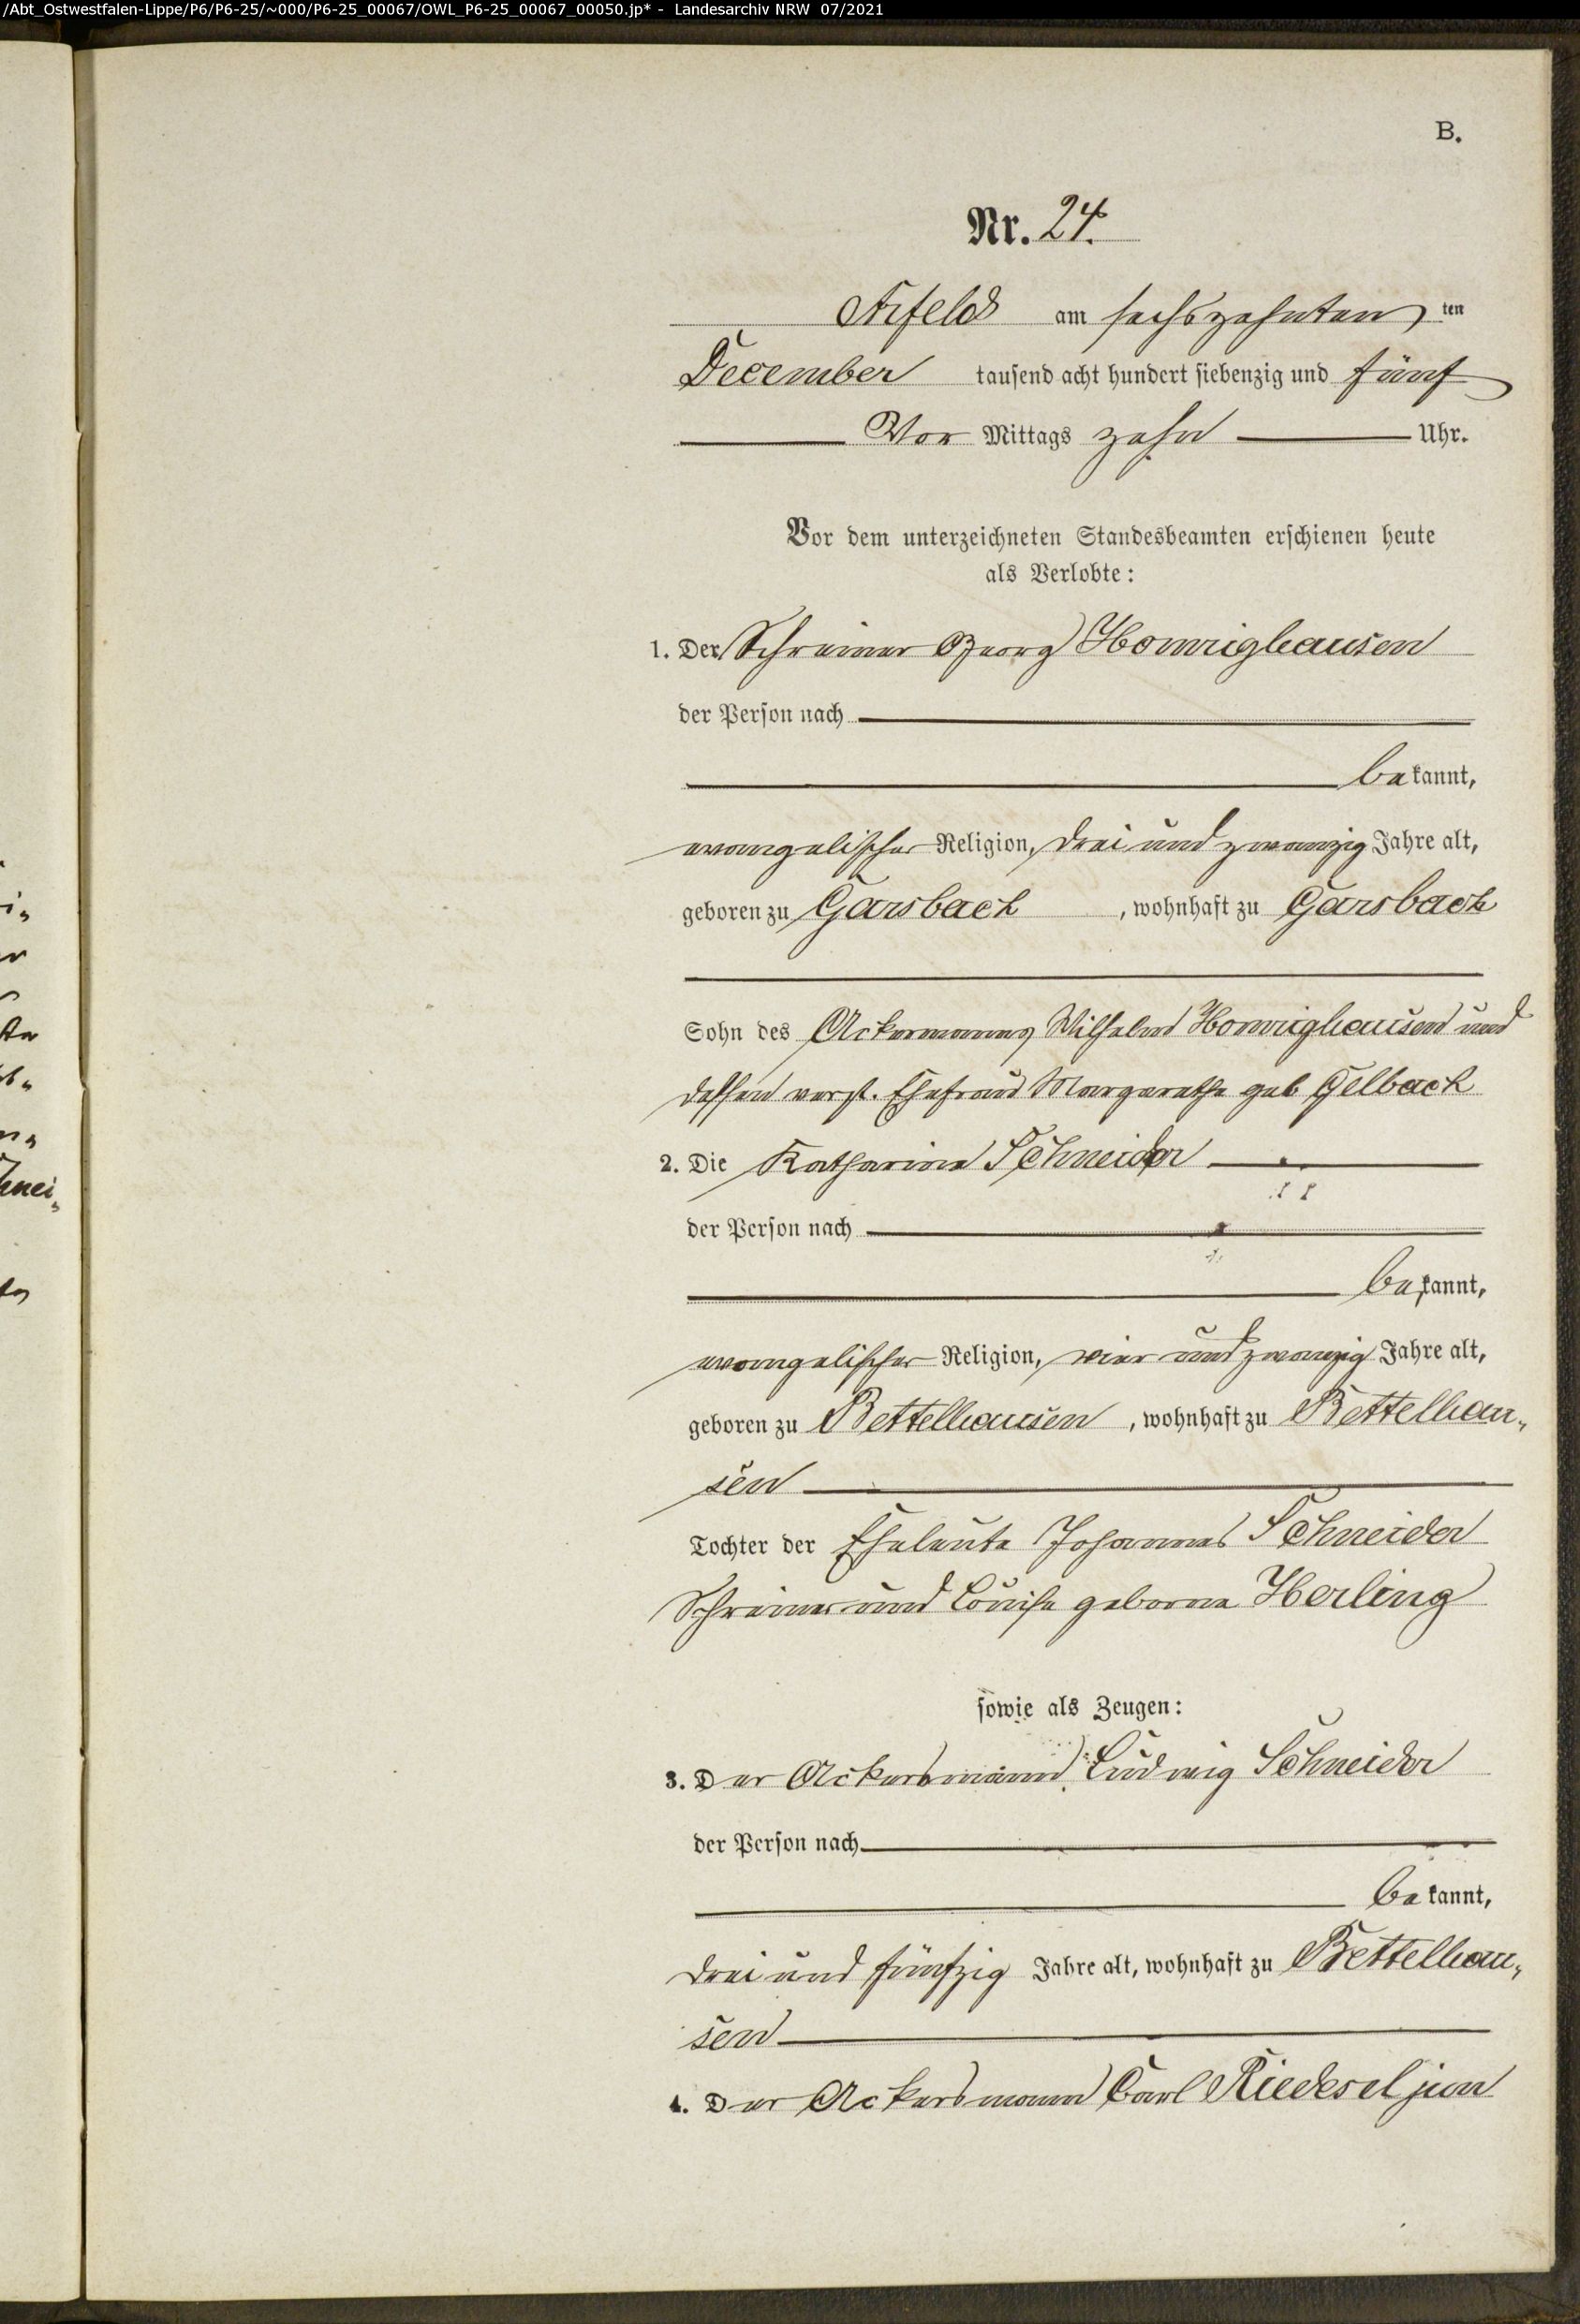 /Abt_Ostwestfalen-Lippe/P6/P6-25/~000/P6-25_00067/OWL_P6-25_00067_00050.jp* - Landesarchiv NRW 07/2021
B.
Nr. 24.
Arfeld am sechszehnten ten
December tausend acht hundert siebenzig und fünf
Vor Mittags zehn Uhr.
Vor dem unterzeichneten Standesbeamten erschienen heute
als Verlobte:
1. Der Schreiner Georg Homrighausen
der Person nach
bekannt,
evangelischer Religion, drei und zwanzig Jahre alt,
geboren zu Garsbach, wohnhaft zu Garsbach
Sohn des Ackermanns Wilhelm Homrighausen und
dessen verst. Ehefrau Margarethe geb Gelbach
2. Die Katharine Schneider
der Person nach
bekannt,
evangelischer Religion, vier und zwanzig Jahre alt,
geboren zu Bettelhausen, wohnhaft zu Bettelhau„
sen
Tochter der Eheleute Johannes Schneider
Schreiner und Louise geborne Herling
sowie als Zeugen:
3. Der Ackersmann Ludwig Schneider
der Person nach
bekannt,
drei und fünfzig Jahre alt, wohnhaft zu Bettelhau„
sen
4. Der Ackersmann Carl Riedesel jun